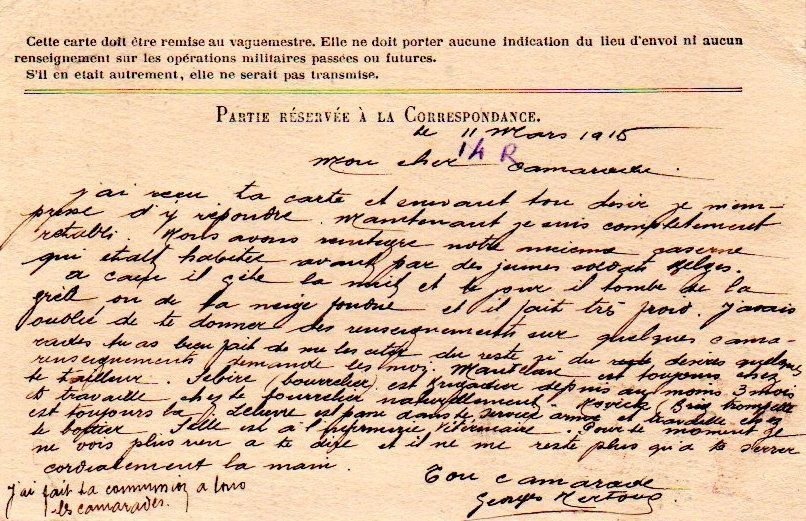 Cette carte doit être remise au vaguemestre. Elle ne doit porter aucune indication du lieu d'envoi ni aucun
renseignement sur les opérations militaires passées ou futures.
S'il en était autrement, elle ne serait pas transmise.
PARTIE RÉSERVÉE À LA CORRESPONDANCE.
le 11 Mars 1915
14 R
Mon cher Camarade.
J'ai reçu ta carte et suivant ton desir je m'em-
presse d'y répondre. Maintenant je suis complètement
rétabli. Nous avons reintegré notre ancienne caserne
qui était habitée avant par des jeunes soldats Belges.
A Caen il gèle la nuit et le jour il tombe de la
grêle ou de la neige fondue et il fait très froid. J'avais
oublié de te donner des renseignements sur quelques cama-
rades tu as bien fait de me les citer du reste si du reste desires quelques
renseignements demande les moi. est toujours chez
le tailleur. Lebire (bourrelier) est Brigadier depuis au moins 3 mois
et travaille chez le bourrelier naturellement. trompette
est toujours là. Lelievre est passé dans le service armé travaille chez
le bottier. Selle est à l'infirmerie Vétérinaire. Pour le moment je
ne vois plus rien a te dire et il ne me reste plus qu'a te serrer
cordialement la main.
Ton camarade
Georges
J'ai fait ta commission a tous
les camarades.